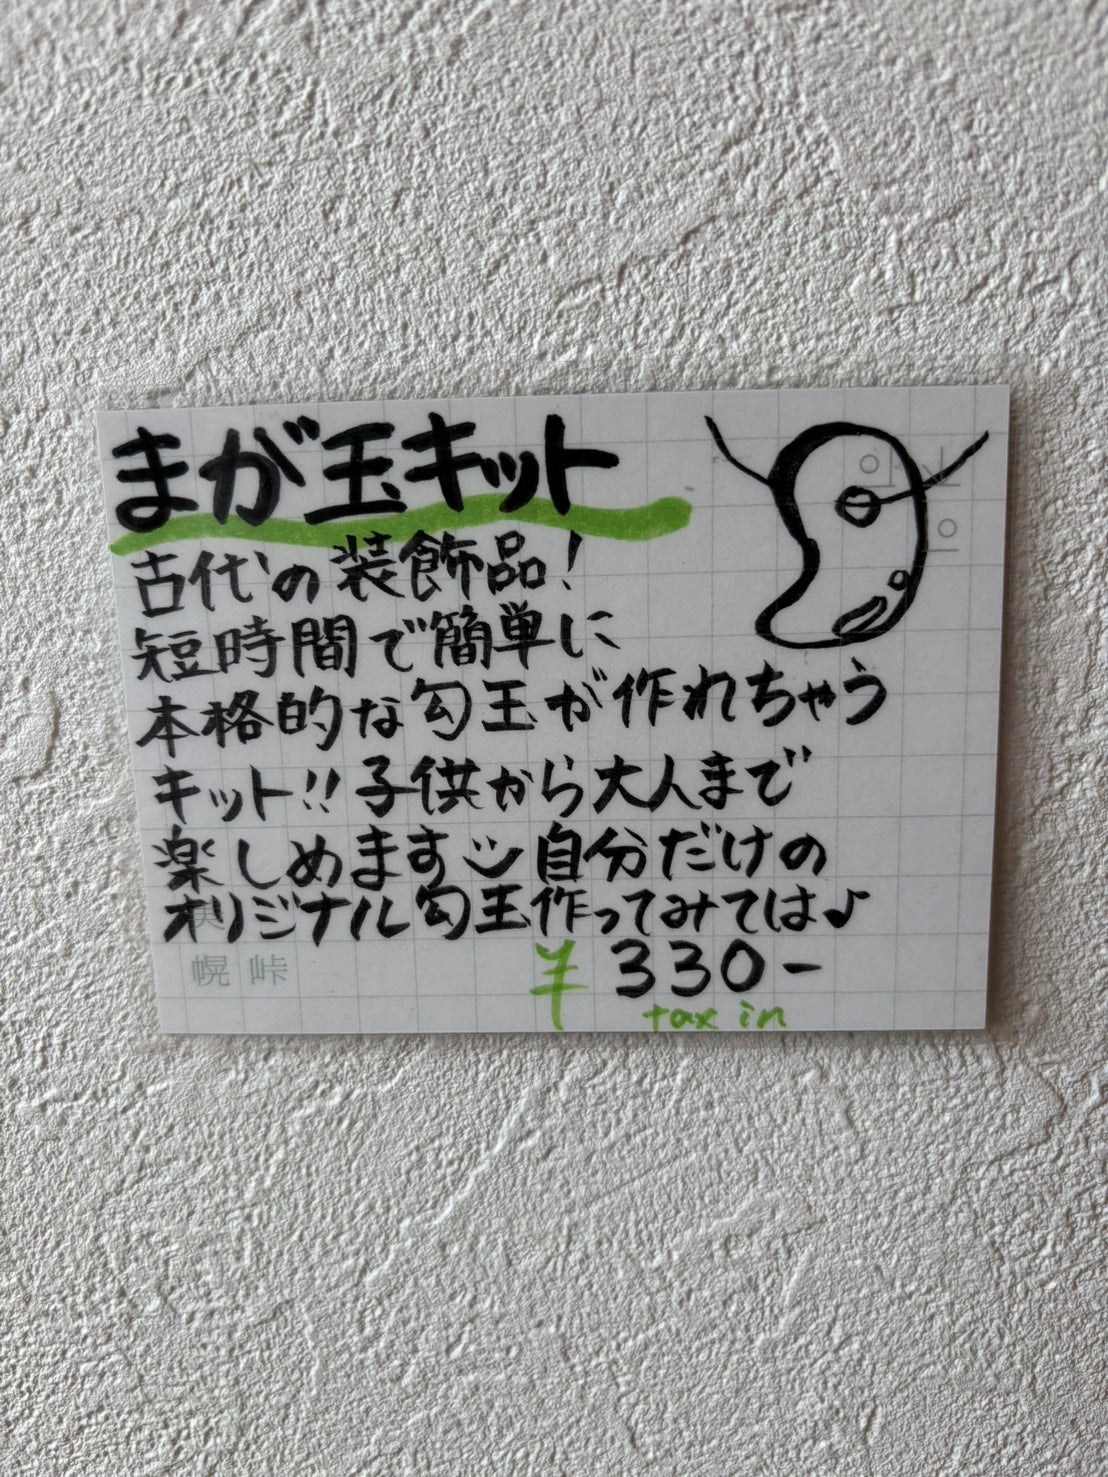 まが玉キット
古代の装飾品!
短時間で簡単に
本格的な勾玉が作れちゃう
キット!!子供から大人まで
楽しめます 自分だけの
オリジナル勾玉作ってみては♪
幌 峠
¥ 330-
tax in